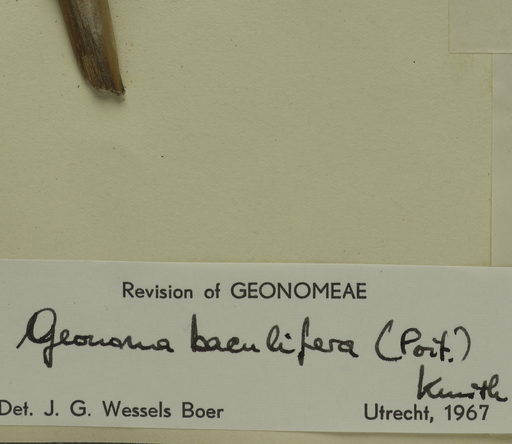 Revision of GEONOMEAE
Geonoma baculifera (Poit.)
Kunth
Det. J. G. Wessels Boer Utrecht, 1967